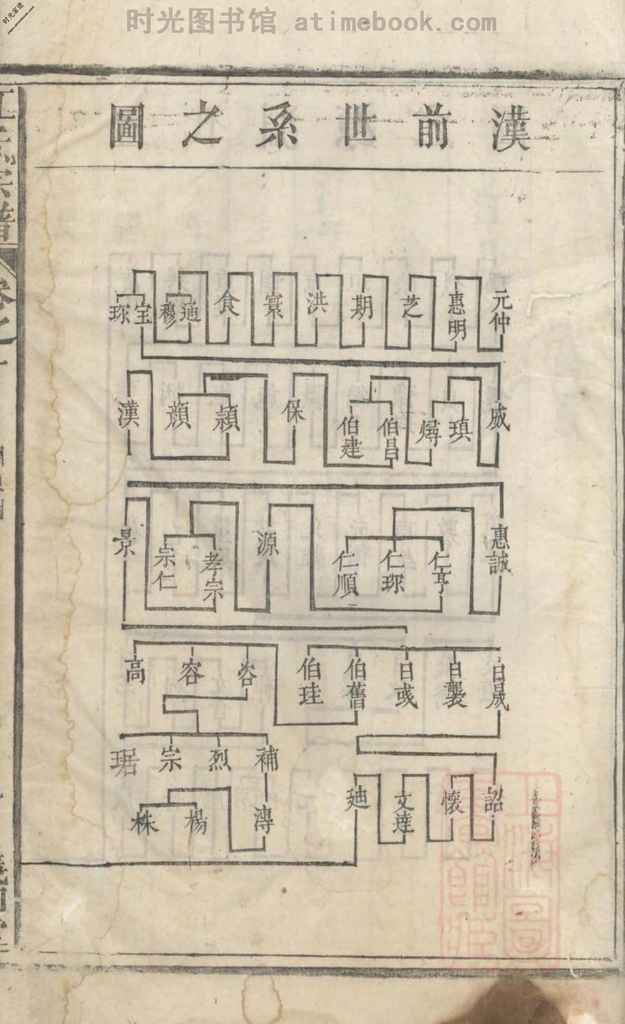 时光图书馆 atimebook.com
漢前世系之圖
元仲 惠明 芝 期 洪 寔 食 迪 穆 宝 琢
威 瑱 燖 伯昌 伯建 保 頴 顔 漢
惠誠 仁亨 仁琢 仁順 源 孝宗 宗仁 景
日晟 日襲 日彧 伯舊 伯珪 容 高
補 烈 宗 琚
詔 懷 文達 廸 漙 楊 株